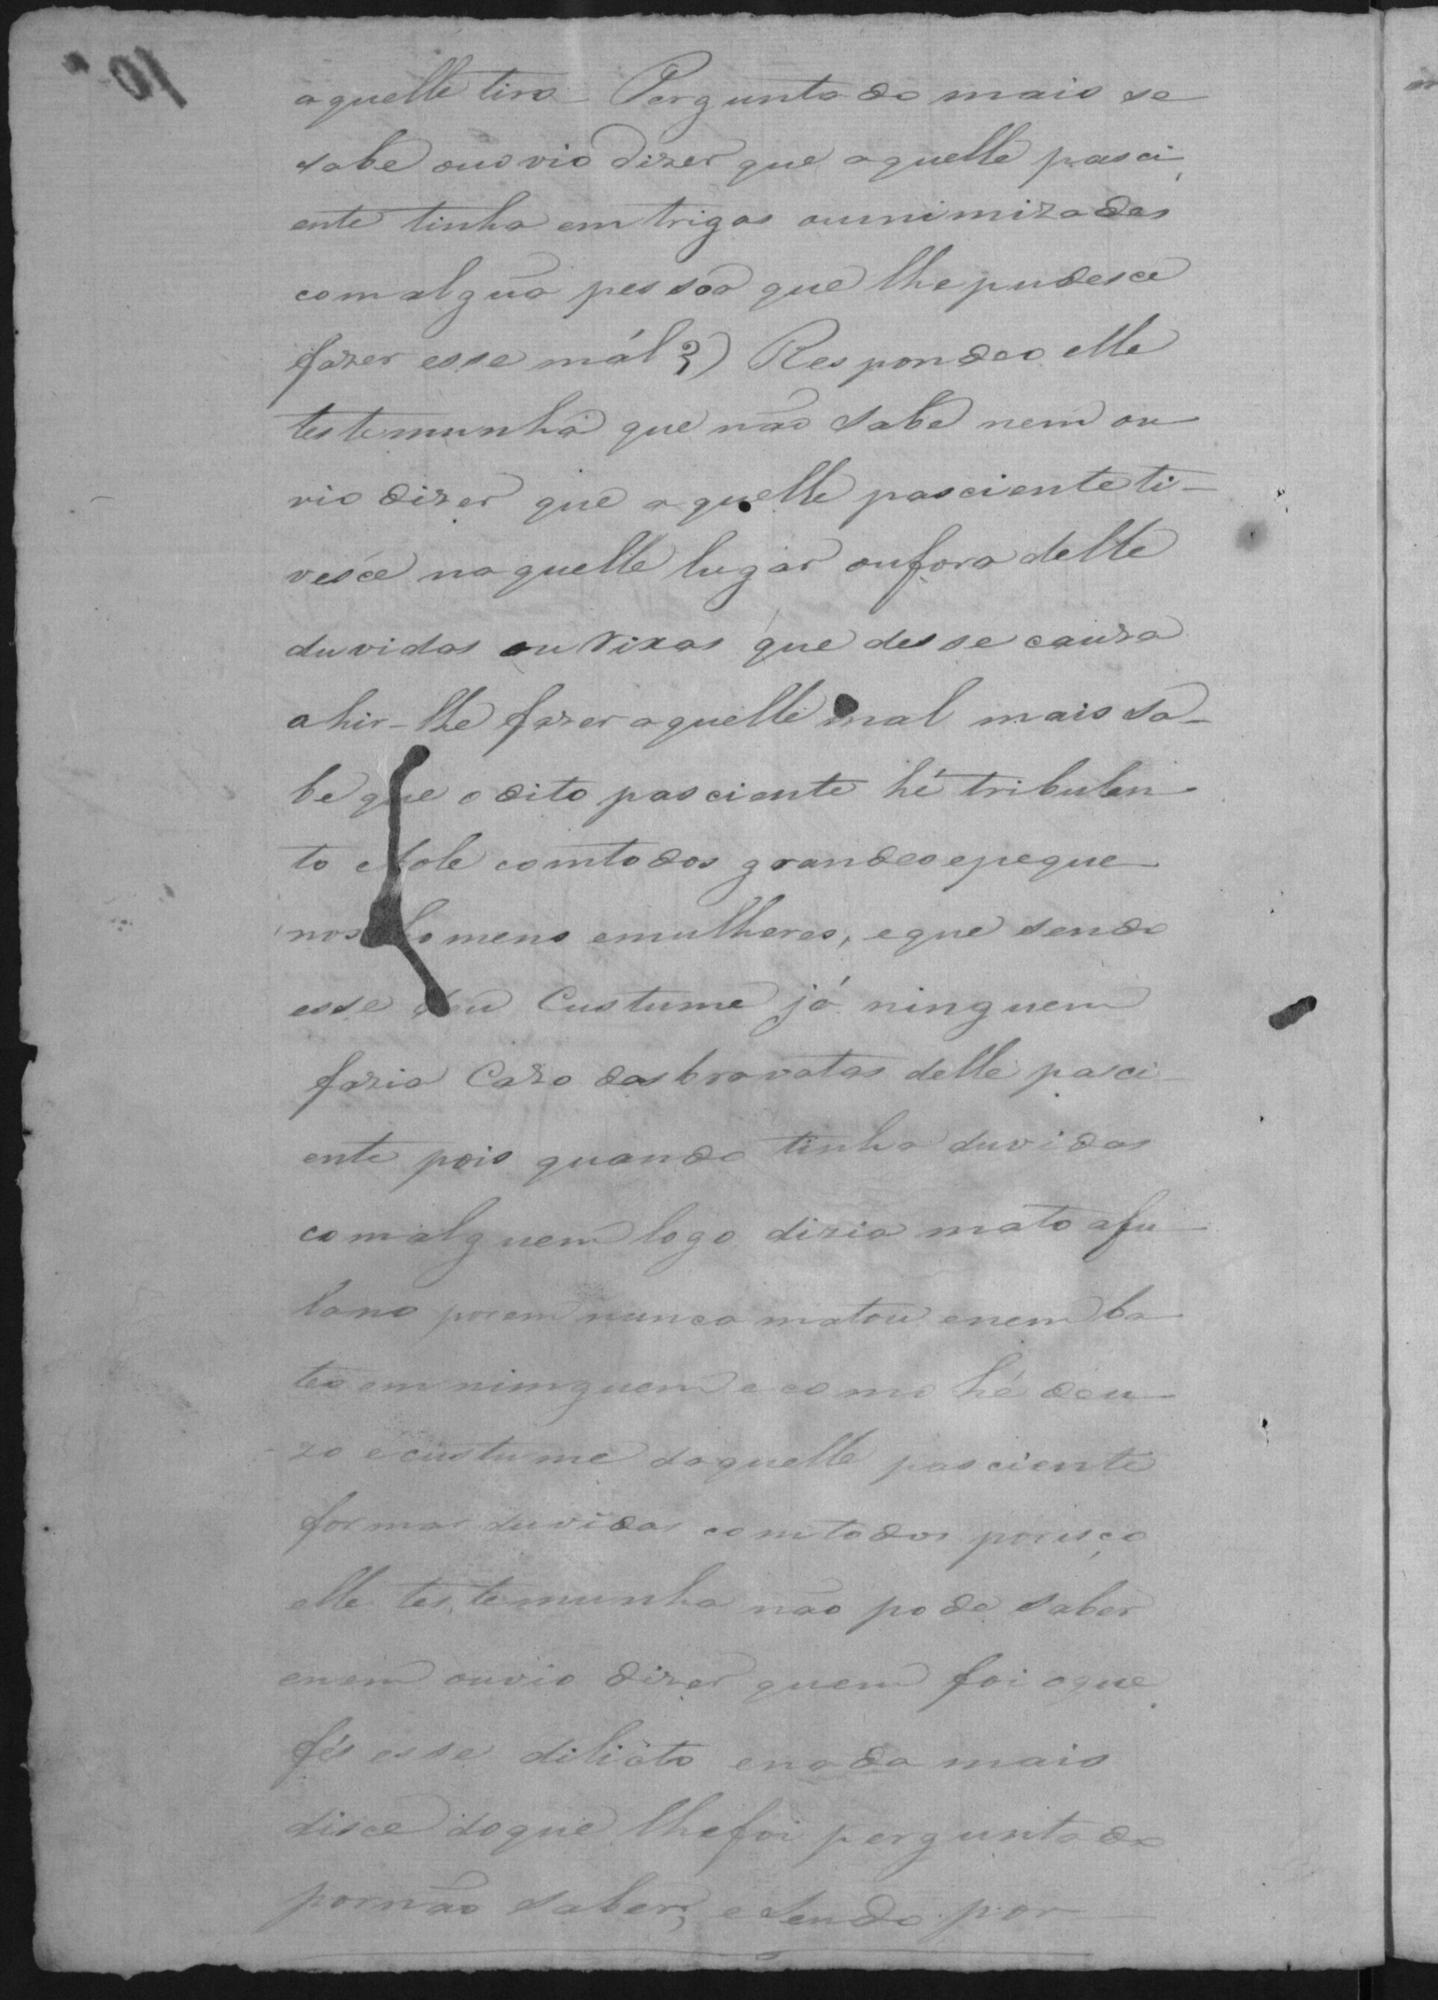 aquelle tiro Perguntado mais se
sabe ouovio dizer que aquelle pasci
ente tinha emtrigas ounimizades
comalguã pessoa que lhepudesce
fazer esse mál?) Respondeo elle
testemunha que não sabe nem ou
vio dizer que aquelle pascienteti-
vesce naquelle lugar oufora delle
duvidas ou rixas que desse cauza
ahir-lhe fazer aquelle mal mais sa-
be que o dito pasciente hé tribulen
to comtodos grandes epeque
nos homens emulheres, eque sendo
esse seu Custume já ninguem
fazia Cazo dasbravatas delle pasci
ente pois quando tinha duvidas
comalguem logo dizia mato afu-
lano porem nunca matou enem ba
teo emnimguem e como hé deu-
zo ecustume daquelle pasciente
formar duvidas comtodos porisço
elle testemunha não pode saber
enem ouvio dizer quem foi oque
fés esse dilicto enada mais
disce doque lhefoi perguntado
pornão saber, esendo por